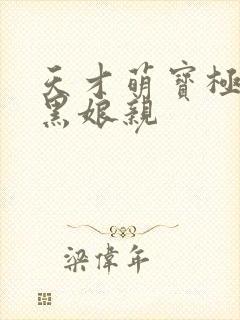 天才萌寶極
黑娘親
梁偉年